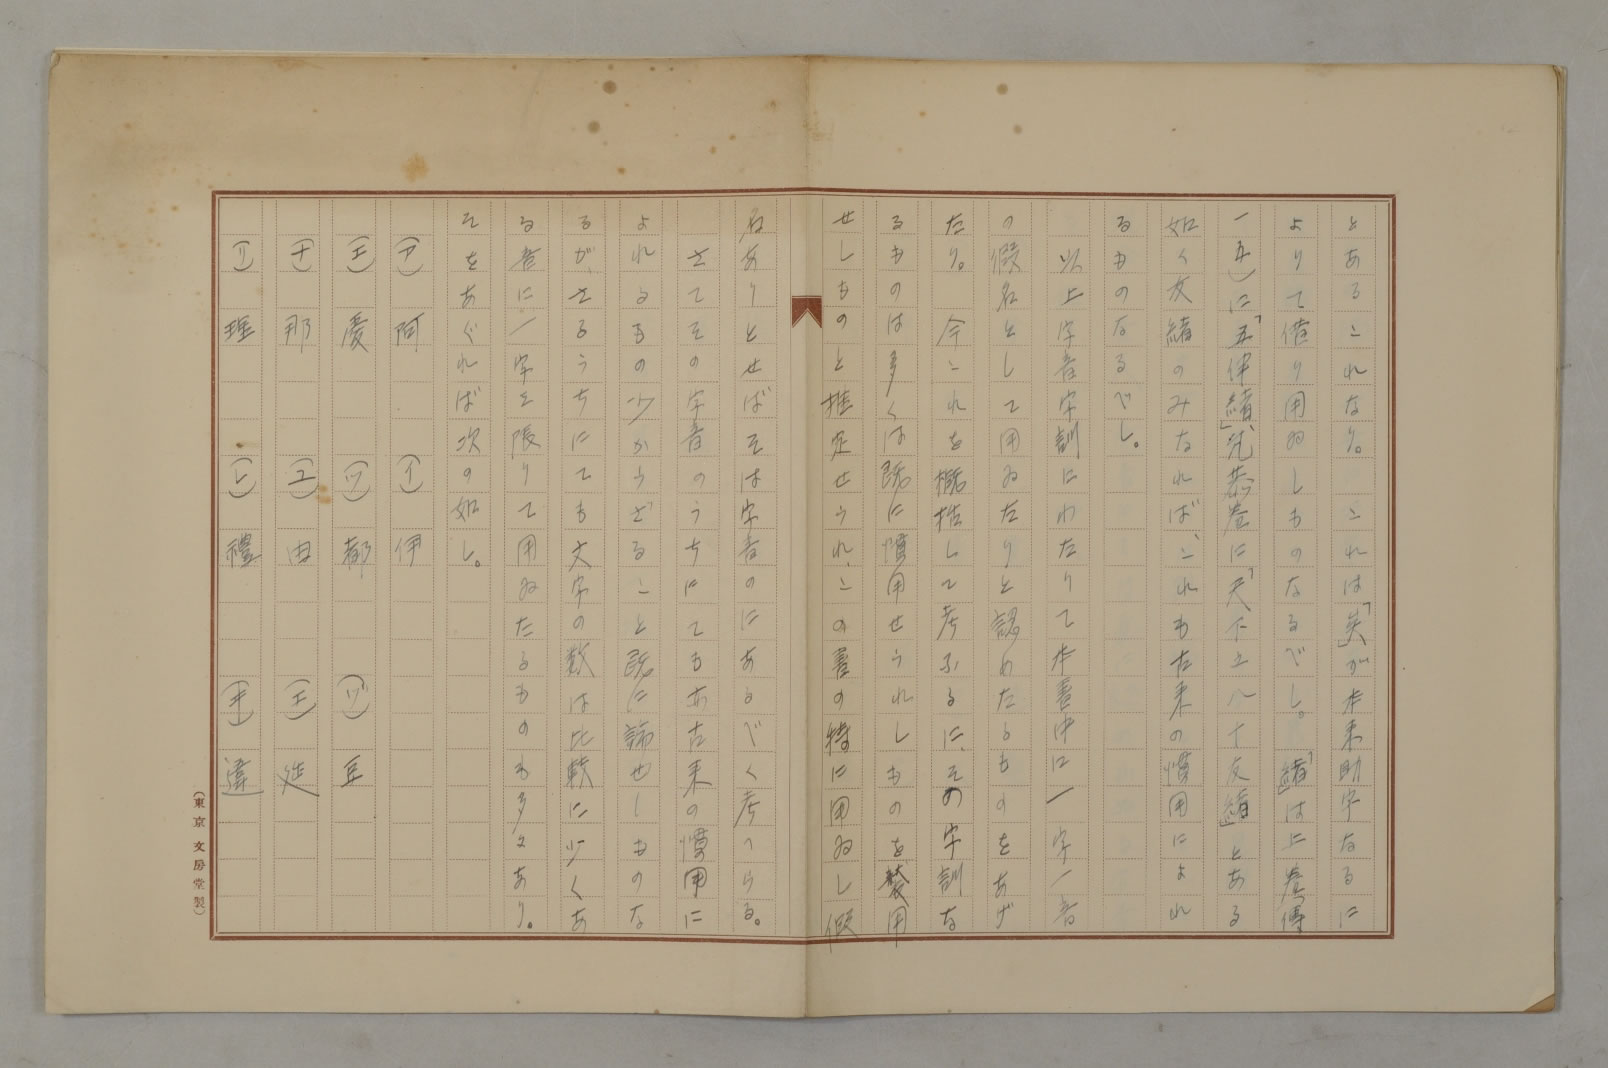 とあるこれなり。これは「矣」が本来助字なるに
よりて借り用ゐしものなるべし。「緒」は上巻傳
一五)に「五伴緒」、允恭巻に「天下之八十友緒」とある
如く友緒のみなれば、これも古来の慣用によれ
るものなるべし。
以上字音字訓にわたりて本書中に一字一音
の假名として用ゐたりと認めたるものをあげ
たり。今これを概括して考ふるに、その字訓な
るものは多くは既に慣用せられしものを襲用
せしものと推定せられ、この書の特に用ゐし假
名ありとせばそは字音のにあるべく考へらる。
さてその字音のうちにても亦古来の慣用に
よれるもの少からざること既に論ぜしものな
るが、さるうちにても文字の数は比較に少くあ
る音に一字を限りて用ゐたるものも多々あり。
そをあぐれば次の如し。
(ア) 阿 (イ) 伊
(エ) 愛 (ツ) 都 (ヅ) 豆
(ナ) 那 (ユ) 由 (エ) 延
(リ) 理 (レ) 禮 (ヰ) 違
(東京 文房堂製)